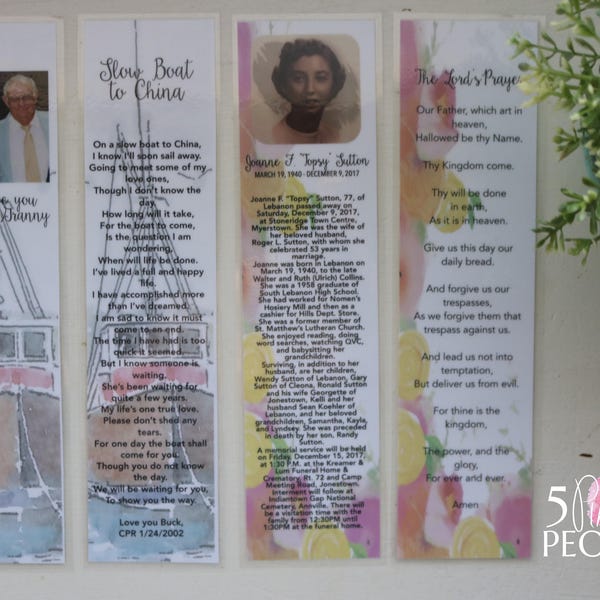 e you
Granny
Slow Boat
to China
On a slow boat to China,
I know I'll soon sail away.
Going to meet some of my
love ones,
Though I don't know the
day.
How long will it take,
For the boat to come,
Is the question I am
wondering.
When will life be done.
I've lived a full and happy
life.
I have accomplished more
than I've dreamed.
I am sad to know it must
come to an end.
The time I have had is too
quick it seemed.
But I know someone is
waiting.
She's been waiting for
quite a few years.
My life's one true love.
Please don't shed any
tears.
For one day the boat shall
come for you.
Though you do not know
the day.
We will be waiting for you,
To show you the way.
Love you Buck,
CPR 1/24/2002
Joanne F. "Topsy" Sutton
MARCH 19, 1940 - DECEMBER 9, 2017
Joanne F. "Topsy" Sutton, 77, of
Lebanon passed away on
Saturday, December 9, 2017,
at Stoneridge Town Centre,
Myerstown. She was the wife of
her beloved husband,
Roger L. Sutton, with whom she
celebrated 53 years in
marriage.
Joanne was born in Lebanon on
March 19, 1940, to the late
Walter and Ruth (Ulrich) Collins.
She was a 1958 graduate of
South Lebanon High School.
She had worked for Nomen's
Hosiery Mill and then as a
cashier for Hills Dept. Store.
She was a former member of
St. Matthew's Lutheran Church.
She enjoyed reading, doing
word searches, watching QVC,
and babysitting her
grandchildren.
Surviving, in addition to her
husband, are her children,
Wendy Sutton of Lebanon, Gary
Sutton of Cleona, Ronald Sutton
and his wife Georgette of
Jonestown, Kelli and her
husband Sean Koehler of
Lebanon, and her beloved
grandchildren, Samantha, Kayla,
and Lyndsey. She was preceded
in death by her son, Randy
Sutton.
A memorial service will be held
on Friday, December 15, 2017,
at 1:30 P.M. at the Kreamer &
Lum Funeral Home &
Crematory, Rt. 72 and Camp
Meeting Road, Jonestown.
Interment will follow at
Indiantown Gap National
Cemetery, Annville. There will
be a visitation time with the
family from 12:30PM until
1:30PM at the funeral home.
The Lord's Prayer
Our Father, which art in
heaven,
Hallowed be thy Name.
Thy Kingdom come.
Thy will be done
in earth,
As it is in heaven.
Give us this day our
daily bread.
And forgive us our
trespasses,
As we forgive them that
trespass against us.
And lead us not into
temptation,
But deliver us from evil.
For thine is the
kingdom,
The power, and the
glory,
For ever and ever.
Amen
5
PEO